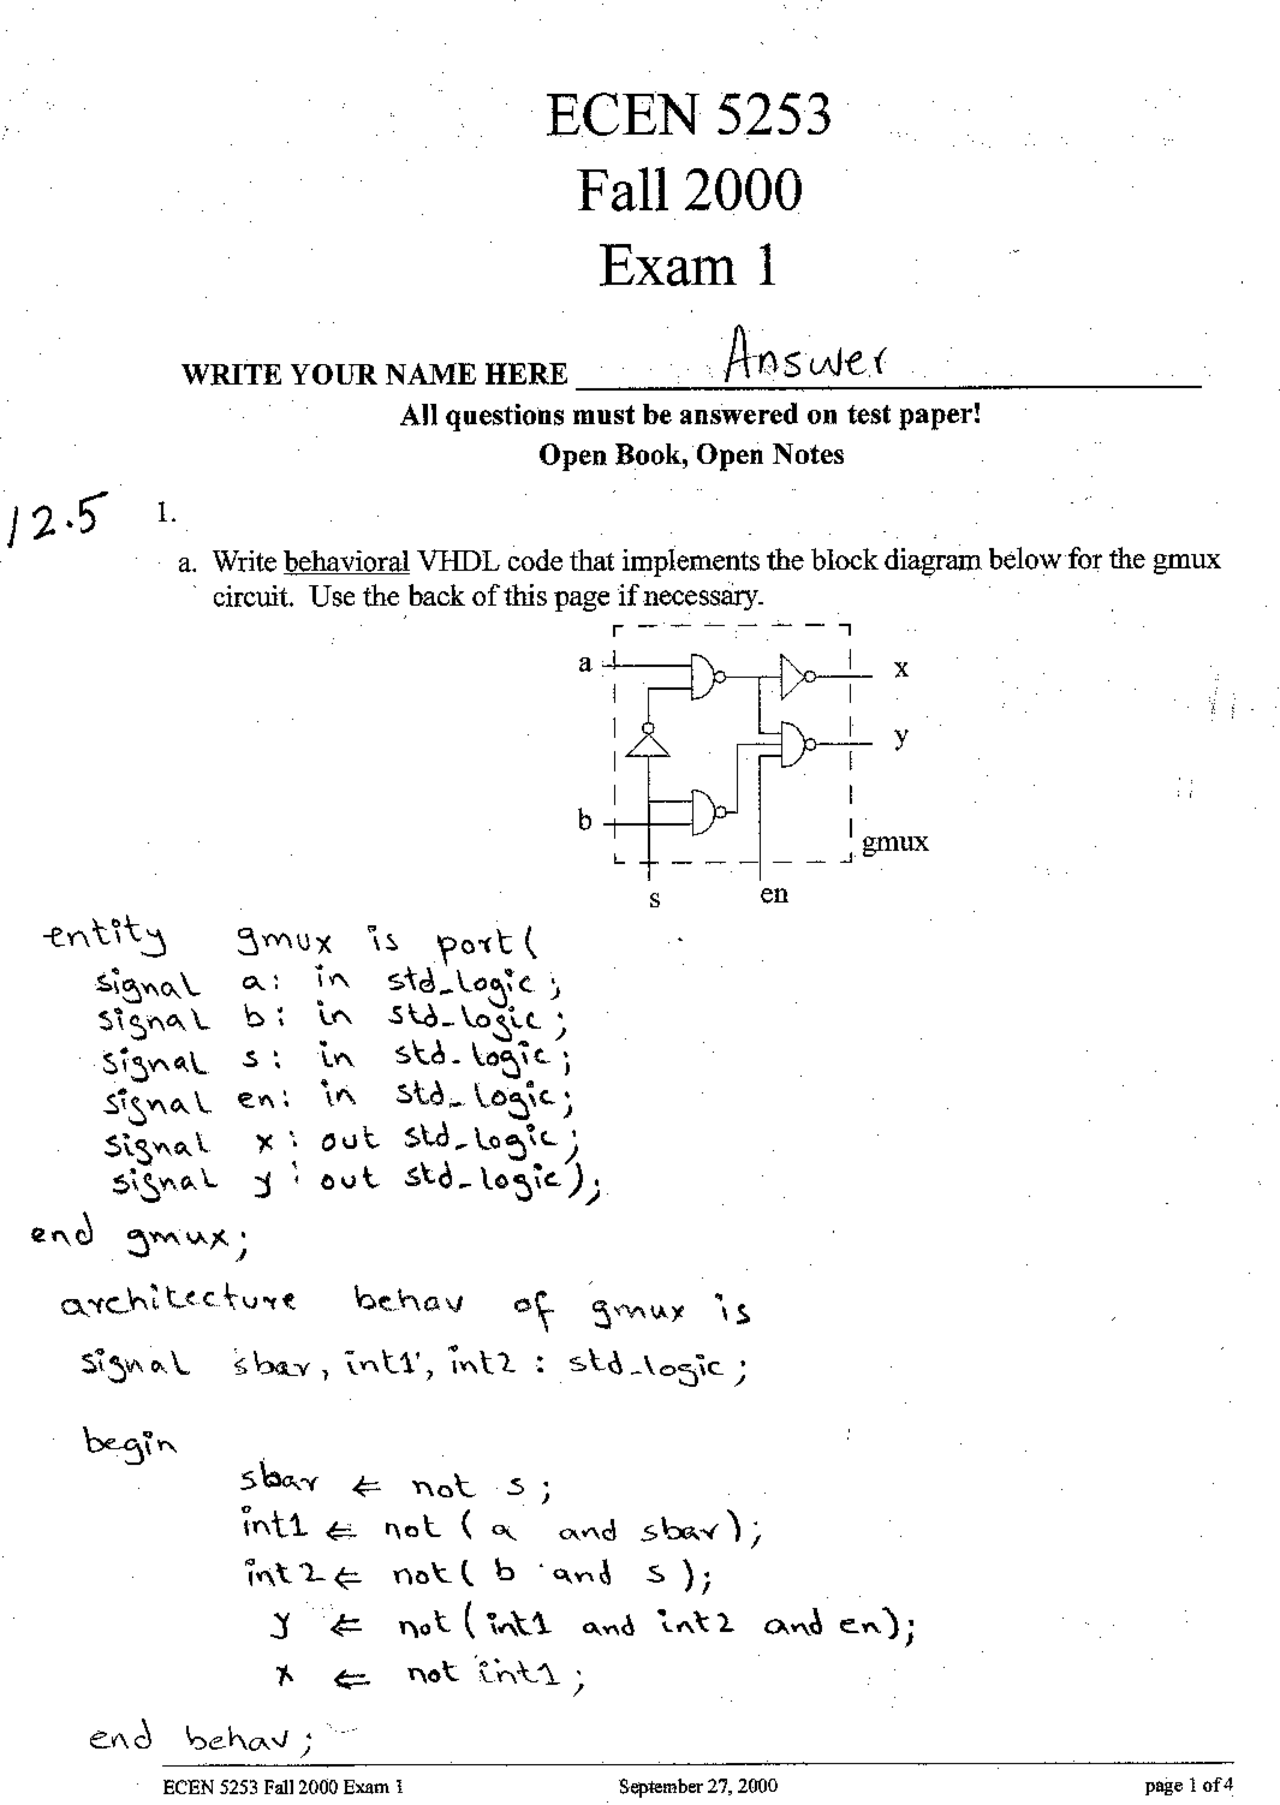 ECEN 5253
Fall 2000
Exam 1
WRITE YOUR NAME HERE Answer
All questions must be answered on test paper!
Open Book, Open Notes
12.5
1.
a. Write behavioral VHDL code that implements the block diagram below for the gmux
circuit. Use the back of this page if necessary.
a
x
y
b
gmux
s
en
entity gmux is port(
signal a: in std_logic;
signal b: in std_logic;
signal s: in std_logic;
signal en: in std_logic;
signal x: out std_logic;
signal y: out std_logic);
end gmux;
architecture behav of gmux is
signal sbar, int1, int2 : std_logic;
begin
sbar <= not s;
int1 <= not (a and sbar);
int2 <= not( b and s);
y <= not(int1 and int2 and en);
x <= not int1;
end behav;
ECEN 5253 Fall 2000 Exam 1 September 27, 2000 page 1 of 4